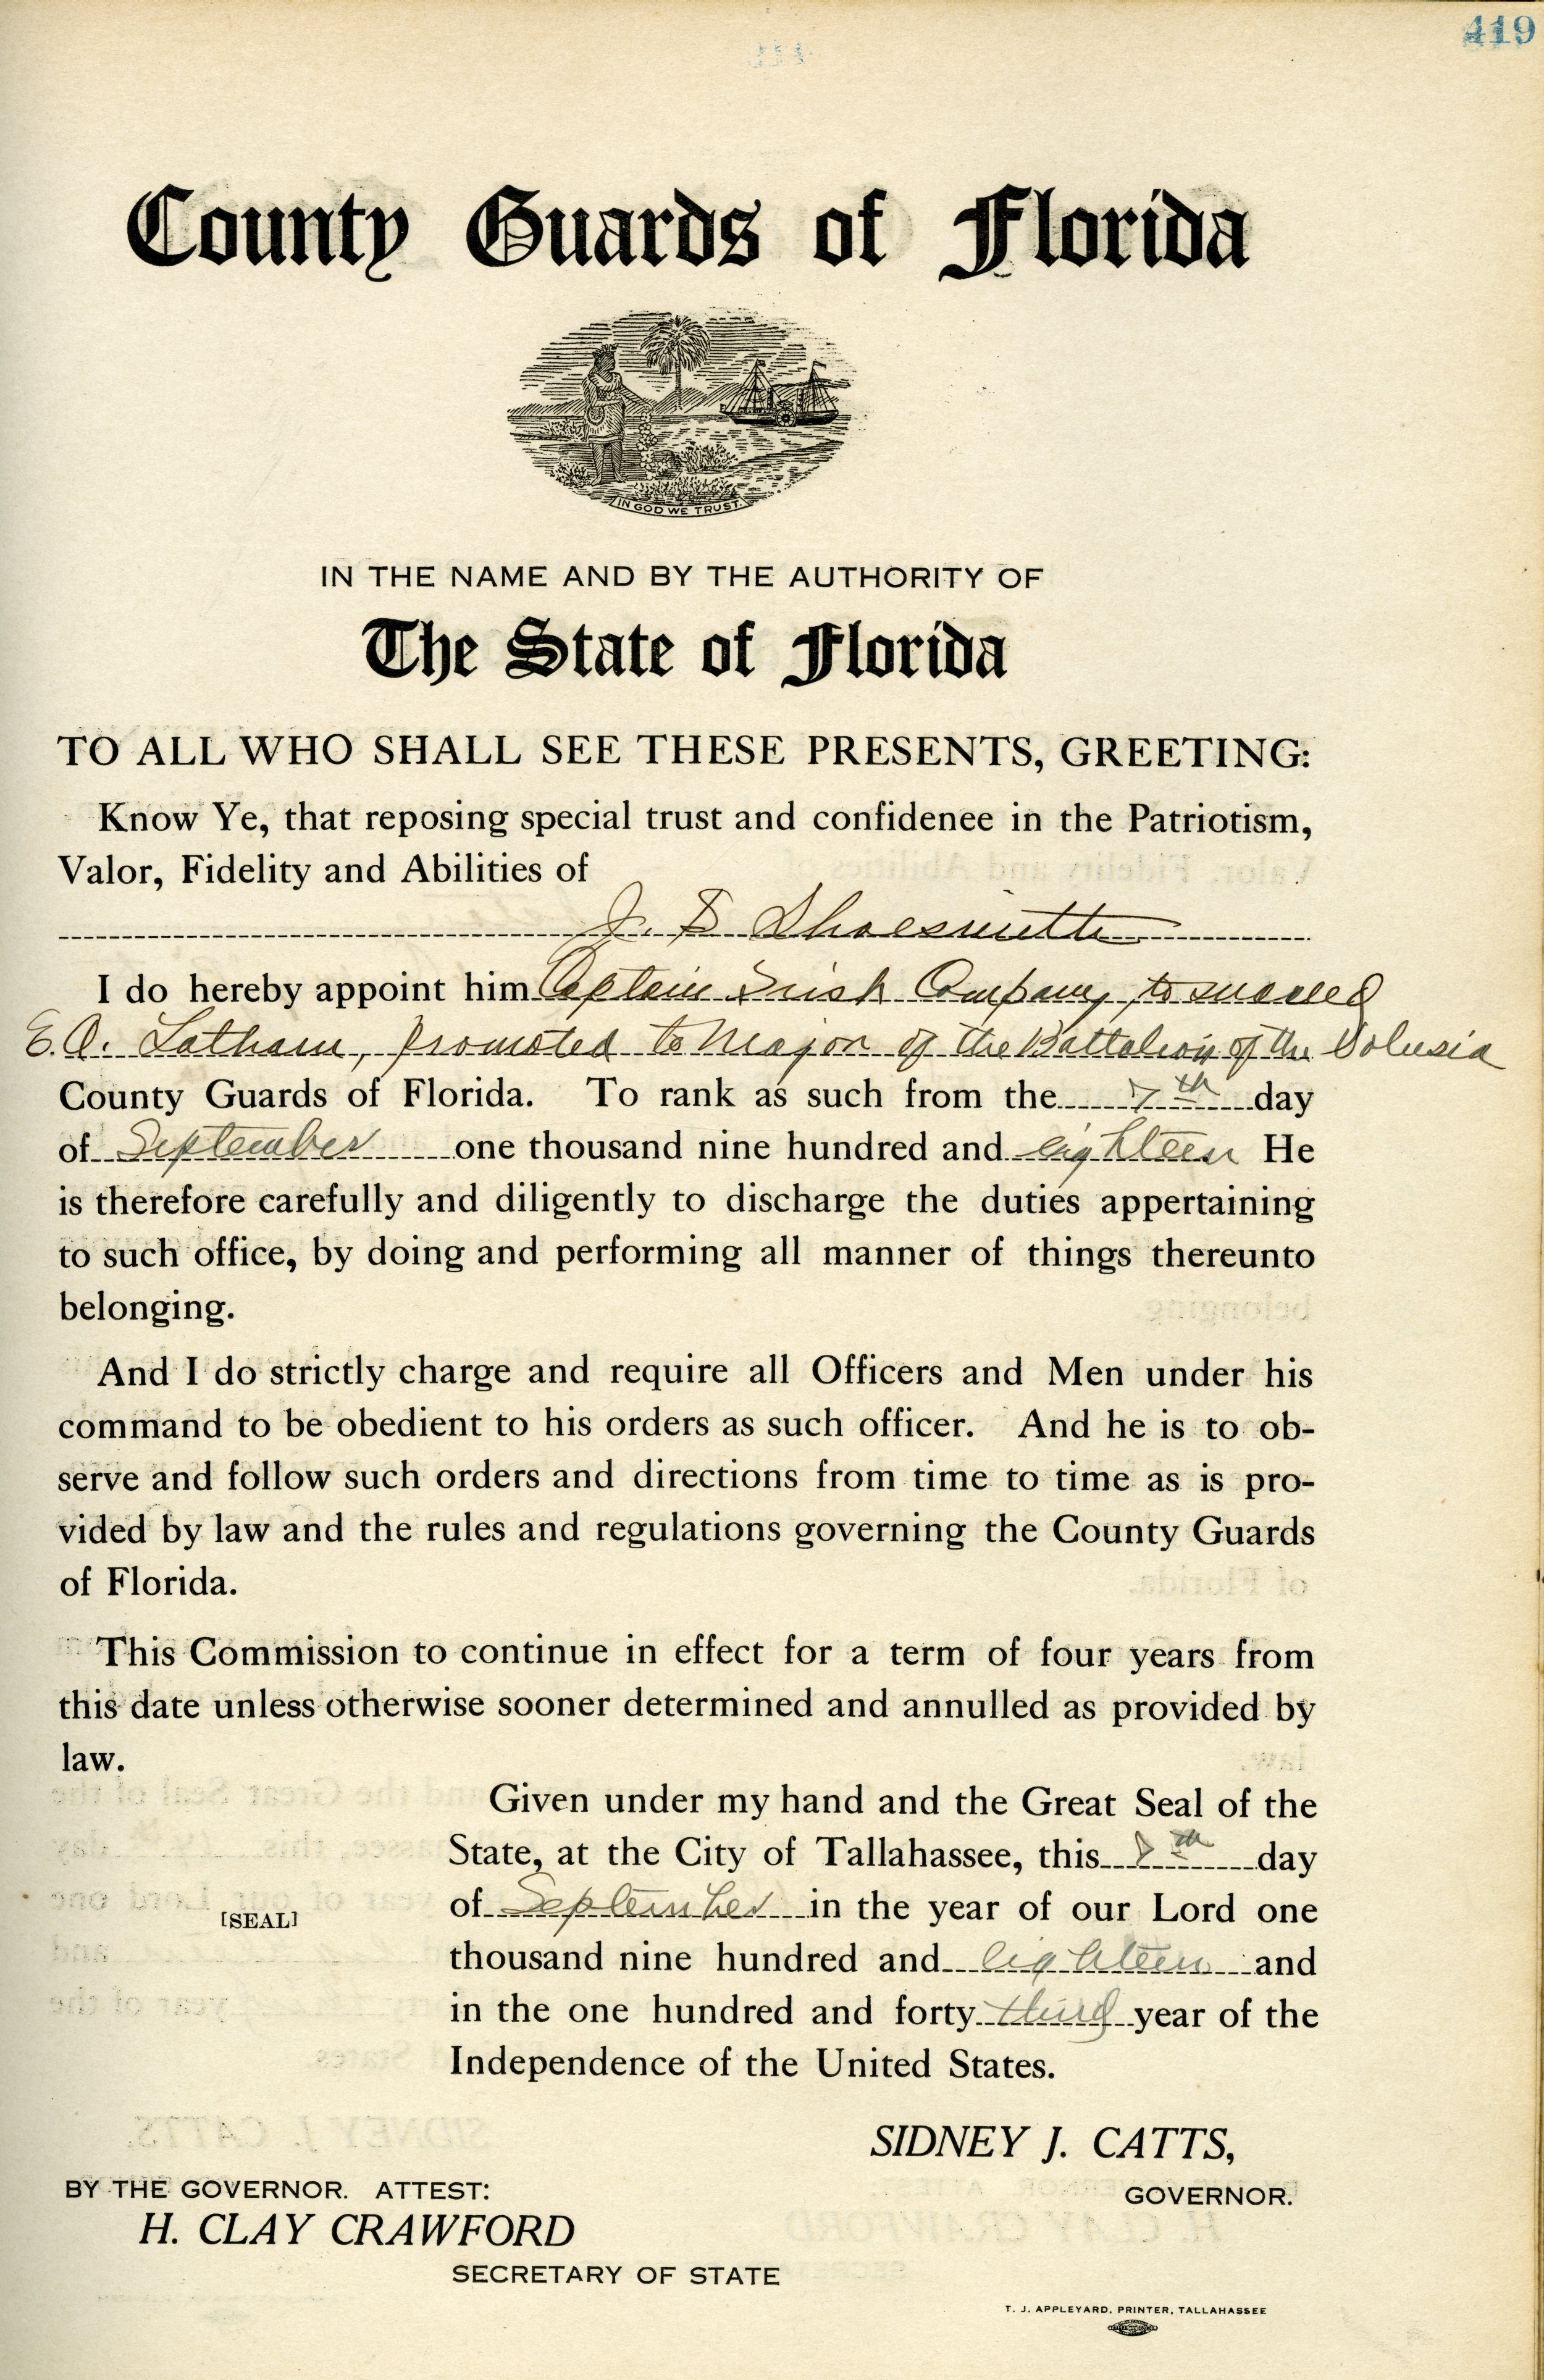 419
County Guards of Florida
IN GOD WE TRUST.
IN THE NAME AND BY THE AUTHORITY OF
The State of Florida
TO ALL WHO SHALL SEE THESE PRESENTS, GREETING:
Know Ye, that reposing special trust and confidenee in the Patriotism,
Valor, Fidelity and Abilities of
J. S Shoesmith
I do hereby appoint him Captain Company, to succeed
E.O. Latham, promoted to Major of the Battalion of the Volusia
County Guards of Florida. To rank as such from the 7th day
of September one thousand nine hundred and eighteen He
is therefore carefully and diligently to discharge the duties appertaining
to such office, by doing and performing all manner of things thereunto
belonging.
And I do strictly charge and require all Officers and Men under his
command to be obedient to his orders as such officer. And he is to ob-
serve and follow such orders and directions from time to time as is pro-
vided by law and the rules and regulations governing the County Guards
of Florida.
This Commission to continue in effect for a term of four years from
this date unless otherwise sooner determined and annulled as provided by
law.
Given under my hand and the Great Seal of the
State, at the City of Tallahassee, this 7th day
[SEAL] of September in the year of our Lord one
thousand nine hundred and eighteen and
in the one hundred and forty third year of the
Independence of the United States.
SIDNEY J. CATTS,
GOVERNOR.
BY THE GOVERNOR. ATTEST:
H. CLAY CRAWFORD
SECRETARY OF STATE
T. J. APPLEYARD, PRINTER, TALLAHASSEE